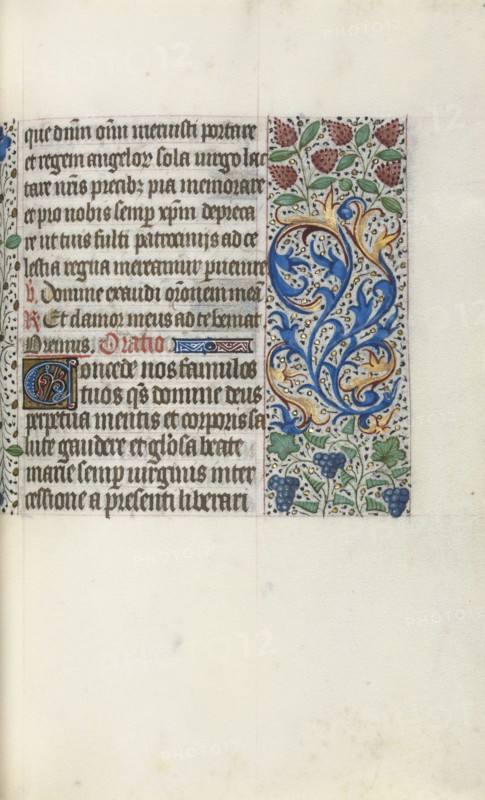 que dñm oĩm meruisti portare
et regem angeloꝝ sola uirgo lac
tare nr̃is precibꝫ pia memorare
et pro nobis semp̱ xp̃m depreca
re ut tuis fulti patrocinijs ad ce
lestia regna mereamur ꝑuenire
V. Domine exaudi or̃onem meã
R Et clamor meus ad te ueniat
Oremus. Oratio
Concede nos famulos
tuos qs̃ domine deus
perpetua mentis et corporis sa
lute gaudere et gl̃osa beate
marie semp̱ uirginis inter
cessione a presenti liberari